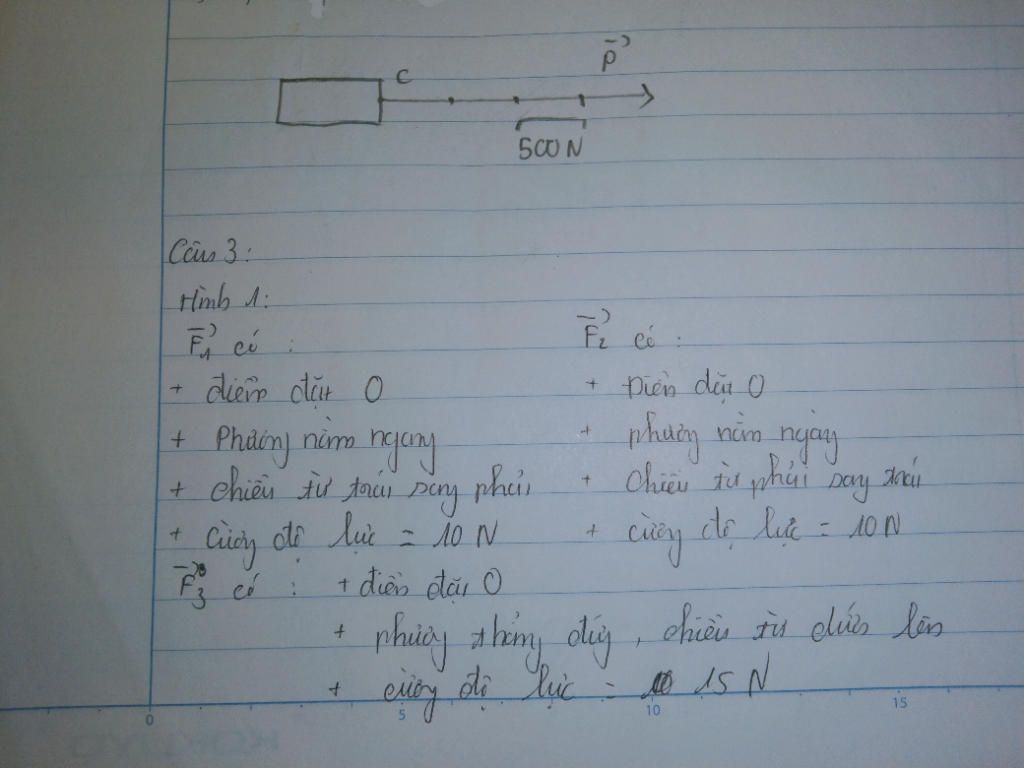 C
P
500 N
Câu 3:
Hình 1:
F1 có :
F2 có :
+ điểm đặt O
+ Điểm đặt O
+ Phương nằm ngang
+ phương nằm ngang
+ chiều từ trái sang phải
+ chiều từ phải sang trái
+ Cường độ lực = 10 N
+ cường độ lực = 10 N
F3 có : + điểm đặt O
+ phương thẳng đứng, chiều từ dưới lên
+ cường độ lực = 15 N
0 5 10 15